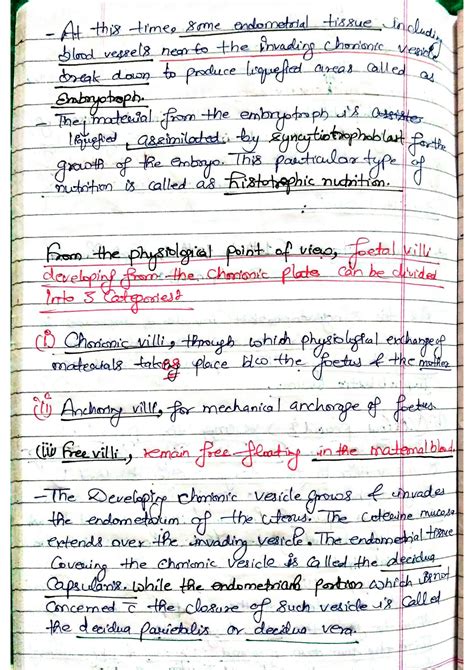 - At this time, some endometrial tissue includi
blood vessels near to the invading chorionic vesicle
break down to produce liquefied areas called as
Embryotroph.
- The material from the embryotroph is
liquefied assimilated by syncytiotrophoblast for the
growth of the embryo. This particular type of
nutrition is called as histotrophic nutrition.
From the physiological point of view, foetal villi
developing from the Chorionic plate can be divided
into 3 Categories:
(i) Chorionic villi, through which physiological exchange of
materials takes place b/co the foetus & the mother
(ii) Anchoring villi, for mechanical anchorage of foetus
(iii) Free villi, remain free-floating in the maternal blood.
- The Developing Chorionic vesicle grows & invades
the endometrium of the uterus. The uterine mucosa
extends over the invading vesicle. The endometrial tissue
Covering the chorionic vesicle is called the decidua
Capsularis. while the endometrium portion which is not
Concerned c̄ the closure of such vesicle is called
the decidua parietalis or decidua vera.